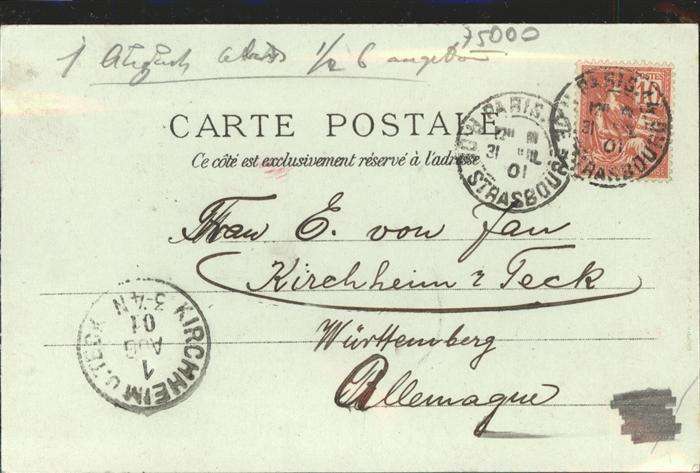 75000
1 August abds 1/2 6
CARTE POSTALE
Ce côté est exclusivement réservé à l'adresse
PARIS
31 JUIL
01
STRASBOURG
POSTES
15
PARIS
31
01
STRASBOURG
Frau E. von Jan
Kirchheim ü Teck
Württemberg
Allemagne
KIRCHHEIM U. TECK
1
AUG
01
3-4 N